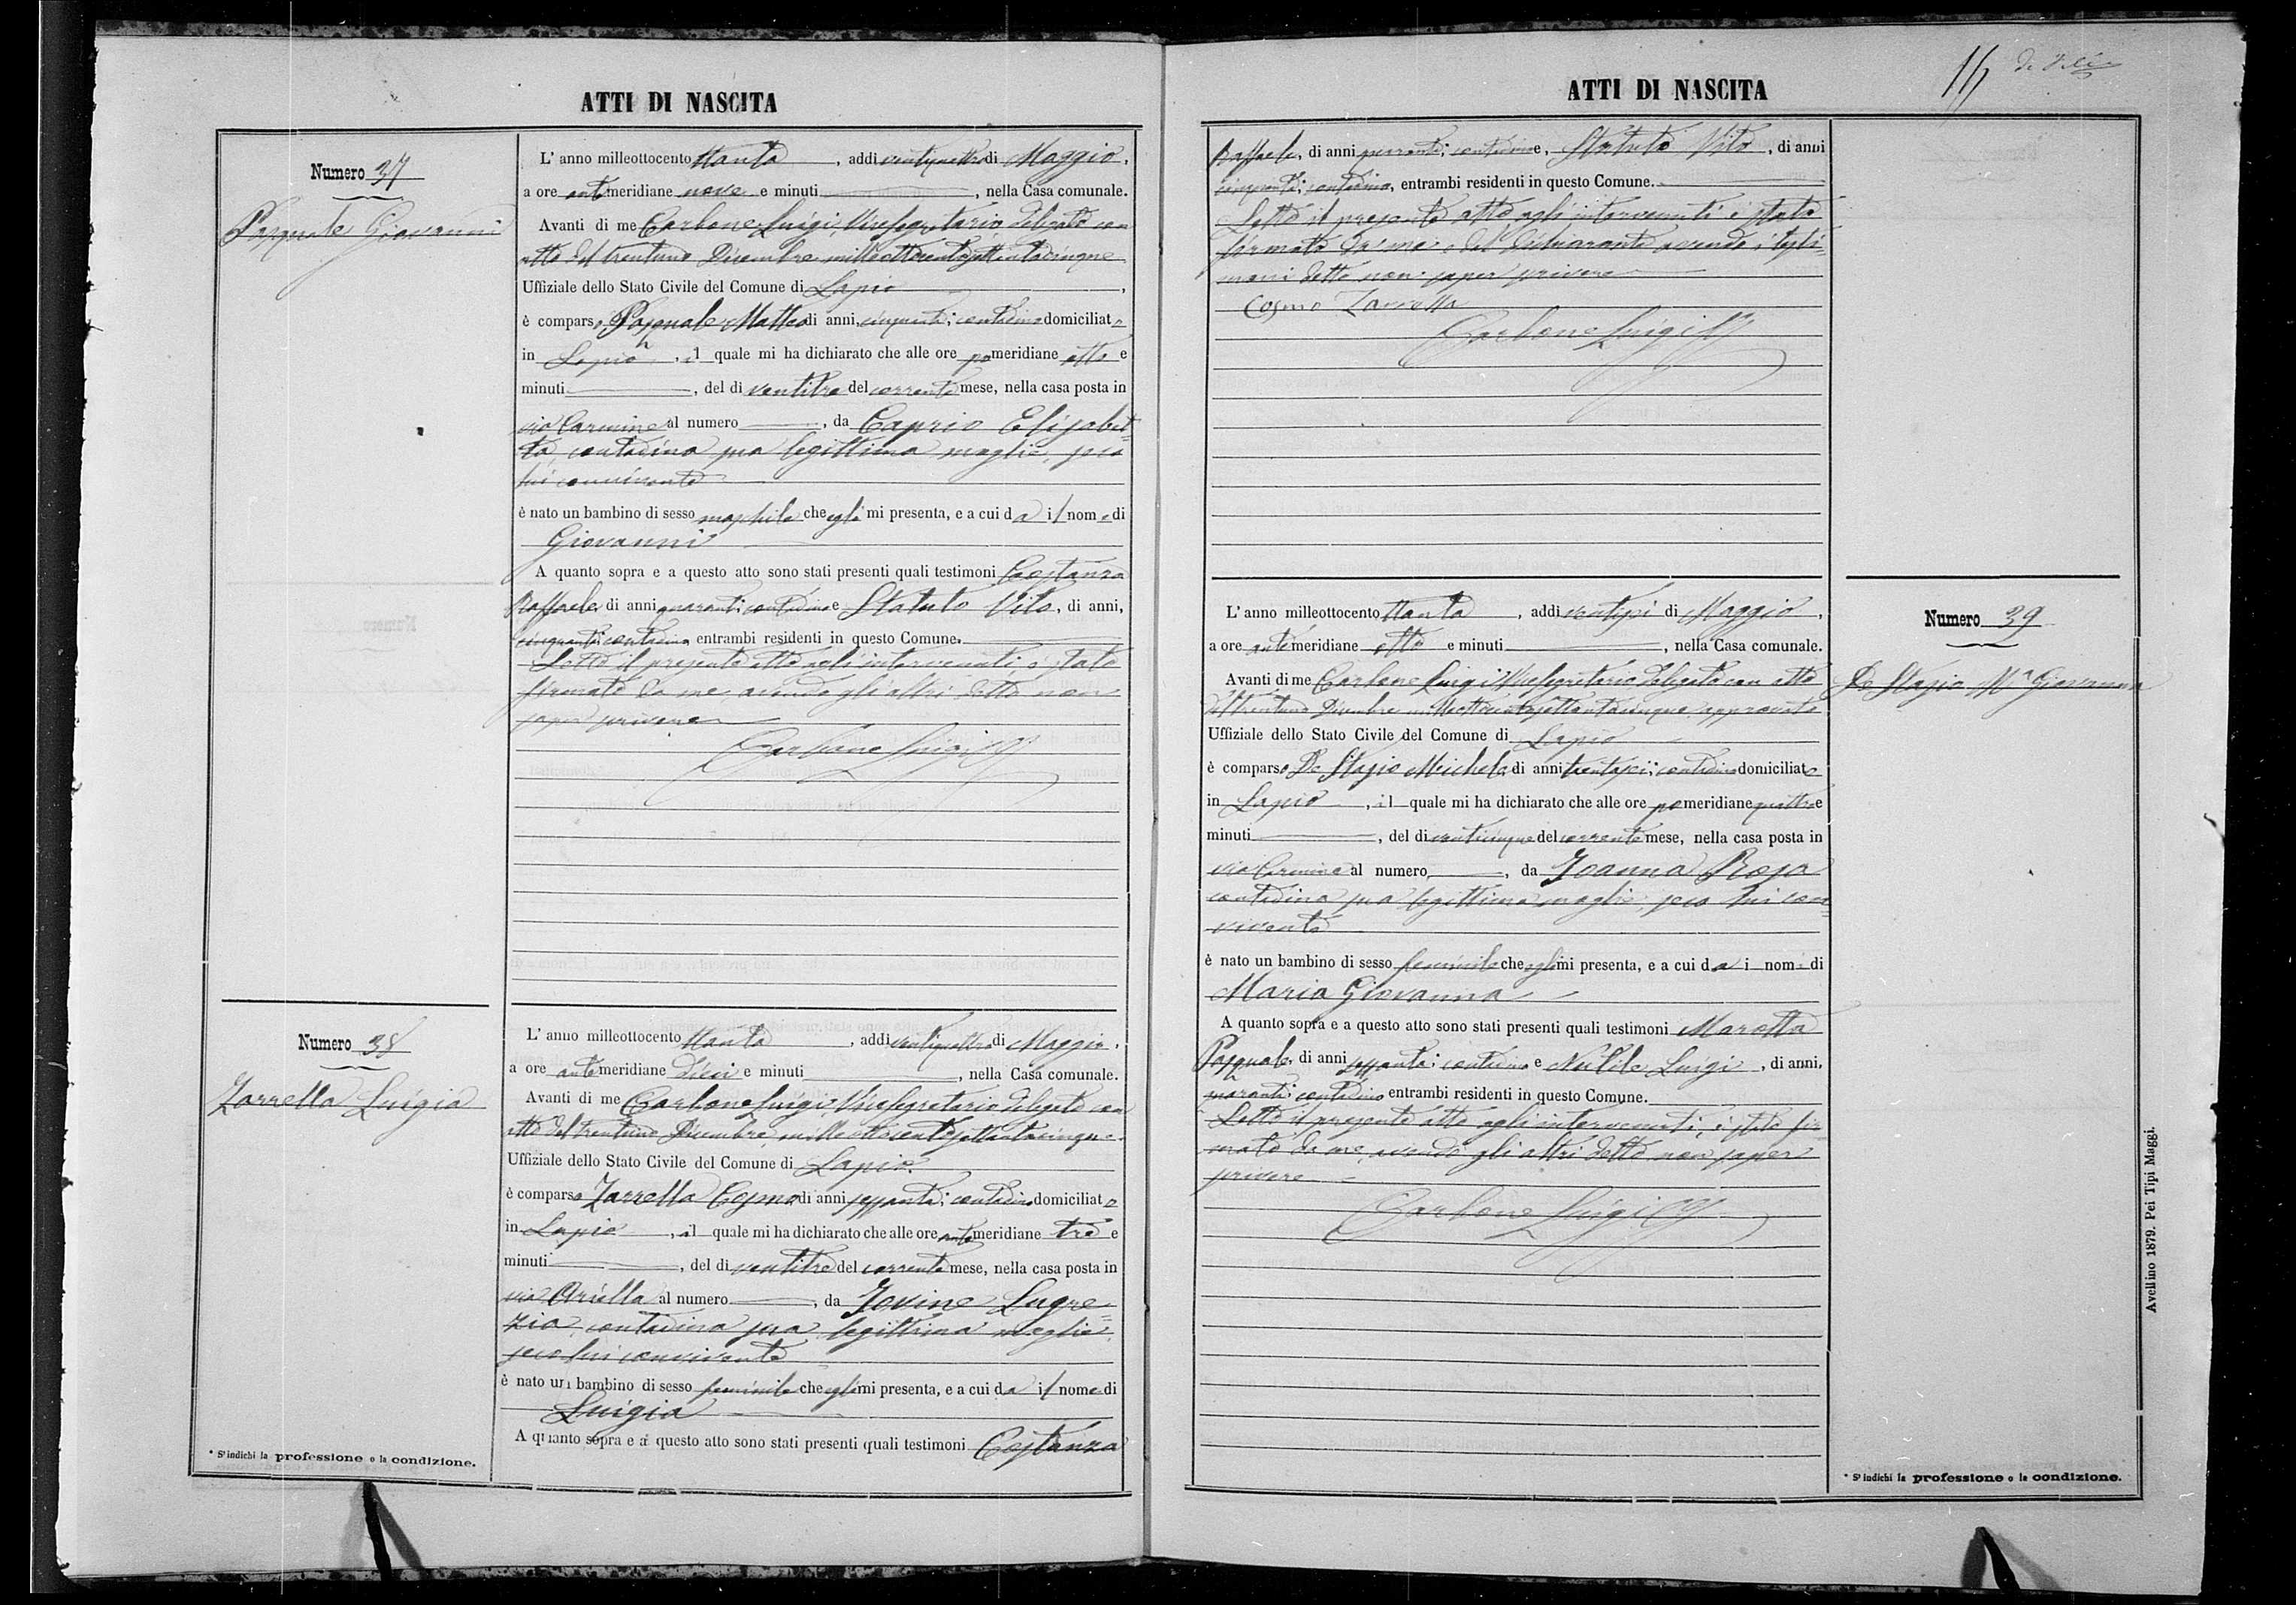 ATTI DI NASCITA
Numero 37
Pasquale Giovanni
L' anno milleottocento ttanta, addi ventiquattro di Maggio,
a ore antimeridiane nove e minuti, nella Casa comunale.
Avanti di me Carbone Luigi, Vicesegretario, delegato con
atto del trentuno Dicembre milleottocentosettantacinque
Uffiziale dello Stato Civile del Comune di Lapio,
è comparso Pasquale Matteo di anni, cinquanta; contadino domiciliato
in Lapio, il quale mi ha dichiarato che alle ore pomeridiane otto e
minuti, del dì ventitre del corrente mese, nella casa posta in
via Carmine al numero, da Caprio Elisabet=
ta, contadina sua legittima moglie, seco
lui convivente
è nato un bambino di sesso maschile che egli mi presenta, e a cui da il nome di
Giovanni
A quanto sopra e a questo atto sono stati presenti quali testimoni Costanza
Raffaele, di anni quaranta; contadino e Statuto Vito, di anni,
cinquanta; contadino, entrambi residenti in questo Comune.
Letto il presente atto agli intervenuti, è stato
firmato da me, avendo gli altri detto non
saper scrivere
Carbone Luigi
Numero 38
Zarrella Luigia
L' anno milleottocento ttanta, addi ventiquattro di Maggio,
a ore antimeridiane dieci e minuti, nella Casa comunale.
Avanti di me Carbone Luigi, Vicesegretario, delegato con
atto del trentuno Dicembre, milleottocentosettantacinque
Uffiziale dello Stato Civile del Comune di Lapio,
è comparso Zarrella Cosmo di anni sessanta; contadino domiciliato
in Lapio, il quale mi ha dichiarato che alle ore antimeridiane tre e
minuti, del dì ventitre del corrente mese, nella casa posta in
via Ariella al numero, da Jovine Lugre=
zia, contadina sua legittima moglie,
seco lui convivente
è nato un bambino di sesso feminile che egli mi presenta, e a cui da il nome di
Luigia
A quanto sopra e a questo atto sono stati presenti quali testimoni Costanza
* S' indichi la professione o la condizione.
ATTI DI NASCITA
Raffaele, di anni quaranta; contadino e, Statuto Vito, di anni
cinquanta; contadino, entrambi residenti in questo Comune.
Letto il presente atto agli intervenuti è stato
firmato da me e dal dichiarante avendo i testi=
moni detto non saper scrivere
Cosmo Zarrella
Carbone Luigi
Numero 39
De Stasio Mª Giovanna
L' anno milleottocento ttanta, addi ventisei di Maggio,
a ore antimeridiane otto e minuti, nella Casa comunale.
Avanti di me Carbone Luigi, Vicesegretario delegato con atto
del trentuno Dicembre milleottocentosettantacinque, approvato
Uffiziale dello Stato Civile del Comune di Lapio
è comparso De Stasio Michele, di anni trentasei; contadino domiciliato
in Lapio, il quale mi ha dichiarato che alle ore pomeridiane quattro e
minuti, del dì venticinque del corrente mese, nella casa posta in
via Carmine al numero, da Joanna Rosa
contadina sua legittima moglie, seco lui con=
vivente
è nato un bambino di sesso feminile che egli mi presenta, e a cui da i nomi di
Maria Giovanna
A quanto sopra e a questo atto sono stati presenti quali testimoni Marotta
Pasquale, di anni sessanta; contadino e Nubile Luigi, di anni,
quaranta; contadino entrambi residenti in questo Comune.
Letto il presente atto agli intervenuti, è stato fir=
mato da me, avendo gli altri detto non saper
scrivere
Carbone Luigi
* S' indichi la professione o la condizione.
Avellino 1879. Pei Tipi Maggi.